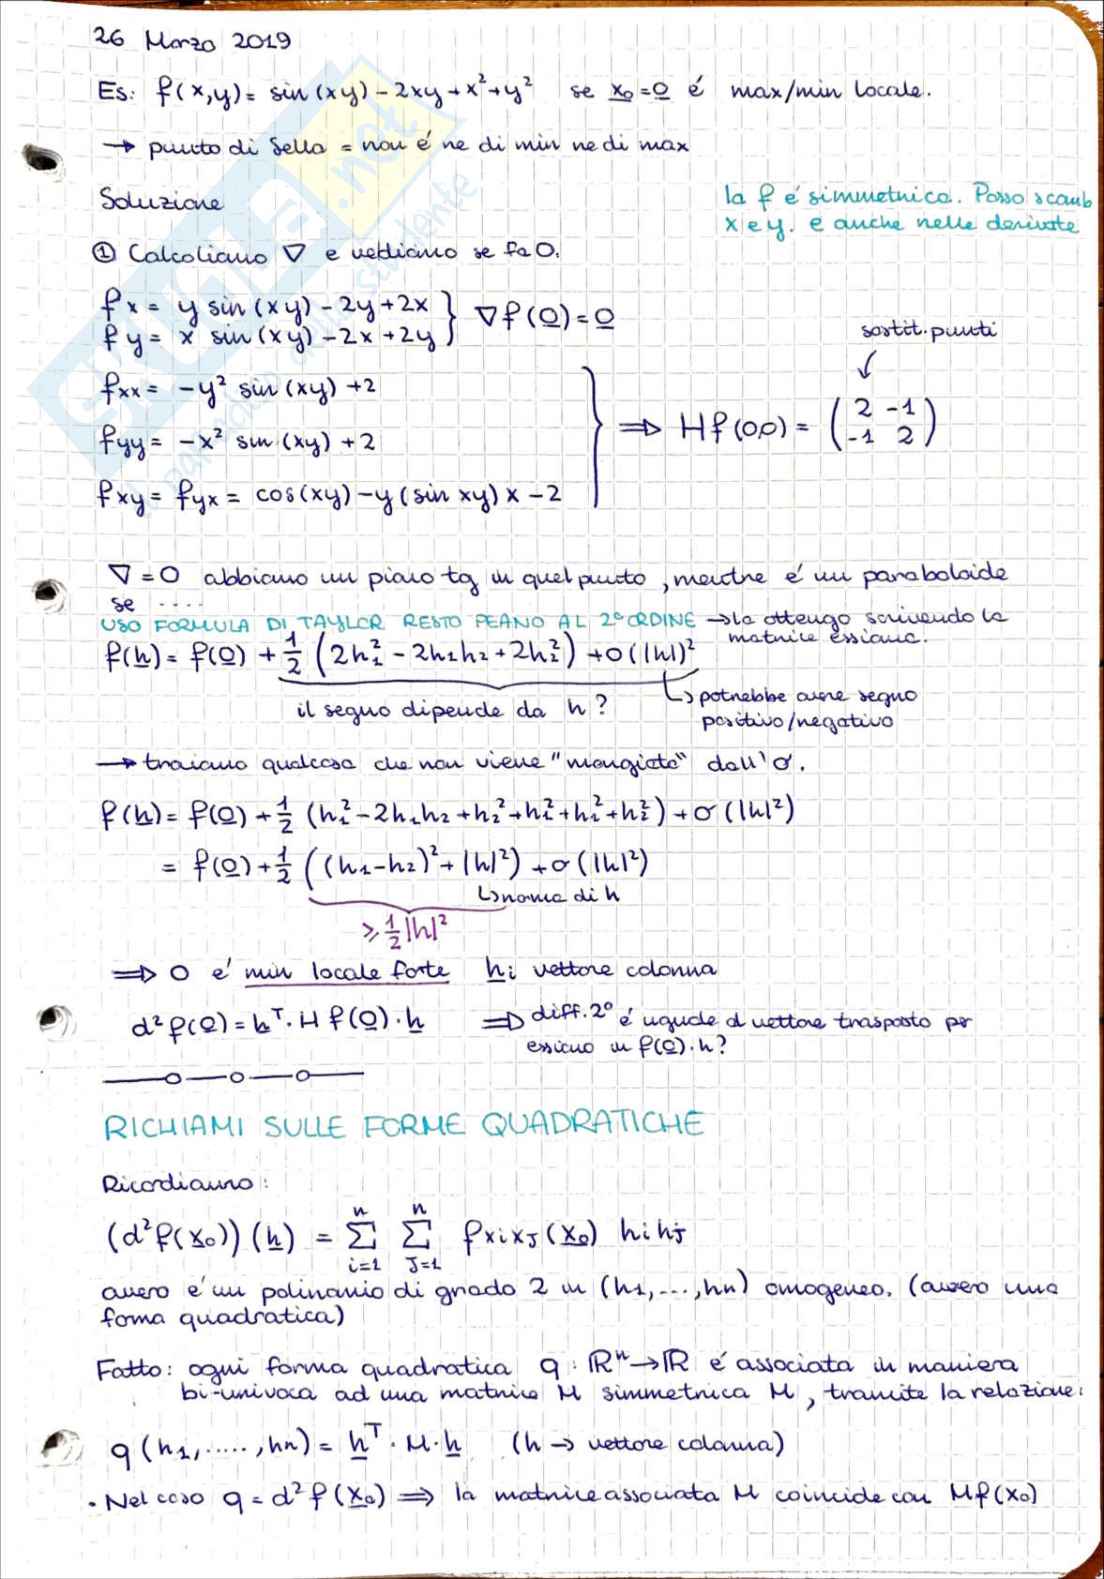 26 Marzo 2019
Es: f(x,y) = sin(xy) - 2xy + x² + y² se x₀ = 0 é max/min locale.
→ punto di Sella = non é ne di min ne di max
Soluzione
la f é simmetrica. Posso scamb
x e y. e anche nelle derivate
① Calcoliamo ∇ e vediamo se fa 0.
fx = y sin(xy) - 2y + 2x } ∇f(0) = 0
fy = x sin(xy) - 2x + 2y
sostit. punti
fxx = -y² sin(xy) + 2
fyy = -x² sin(xy) + 2 ⟹ Hf(0,0) = (2 -1
-1 2)
fxy = fyx = cos(xy) - y(sin xy)x - 2
∇ = 0 abbiamo un piano tg in quel punto, mentre é un paraboloide
se ....
USO FORMULA DI TAYLOR RESTO PEANO AL 2° ORDINE → la ottengo scrivendo la
matrice essiana.
f(h) = f(0) + 1/2 (2h₁² - 2h₁h₂ + 2h₂²) + o(|h|)²
il segno dipende da h? ↳ potrebbe avere segno
positivo/negativo
→ traiamo qualcosa che non viene "mangiato" dall'o.
f(h) = f(0) + 1/2 (h₁² - 2h₁h₂ + h₂² + h₁² + h₁² + h₂²) + o(|h|²)
= f(0) + 1/2 ((h₁-h₂)² + |h|²) + o(|h|²)
↳ norma di h
≥ 1/2 |h|²
⟹ 0 e' min locale forte h: vettore colonna
d²f(0) = hᵀ · Hf(0) · h ⟹ diff. 2° é uguale al vettore trasposto per
essiano in f(0)·h?
RICHIAMI SULLE FORME QUADRATICHE
Ricordiamo:
(d²f(x₀))(h) = Σ i=1 n Σ J=1 n fxixJ(x₀) hihj
ovvero e' un polinomio di grado 2 in (h1,...,hn) omogeneo. (ovvero una
forma quadratica)
Fatto: ogni forma quadratica q : ℝⁿ → ℝ é associata in maniera
bi-univoca ad una matrice M simmetrica M, tramite la relazione:
q(h1,.....,hn) = hᵀ · M · h (h → vettore colonna)
• Nel caso q = d²f(x₀) ⟹ la matrice associata M coincide con Hf(x₀)